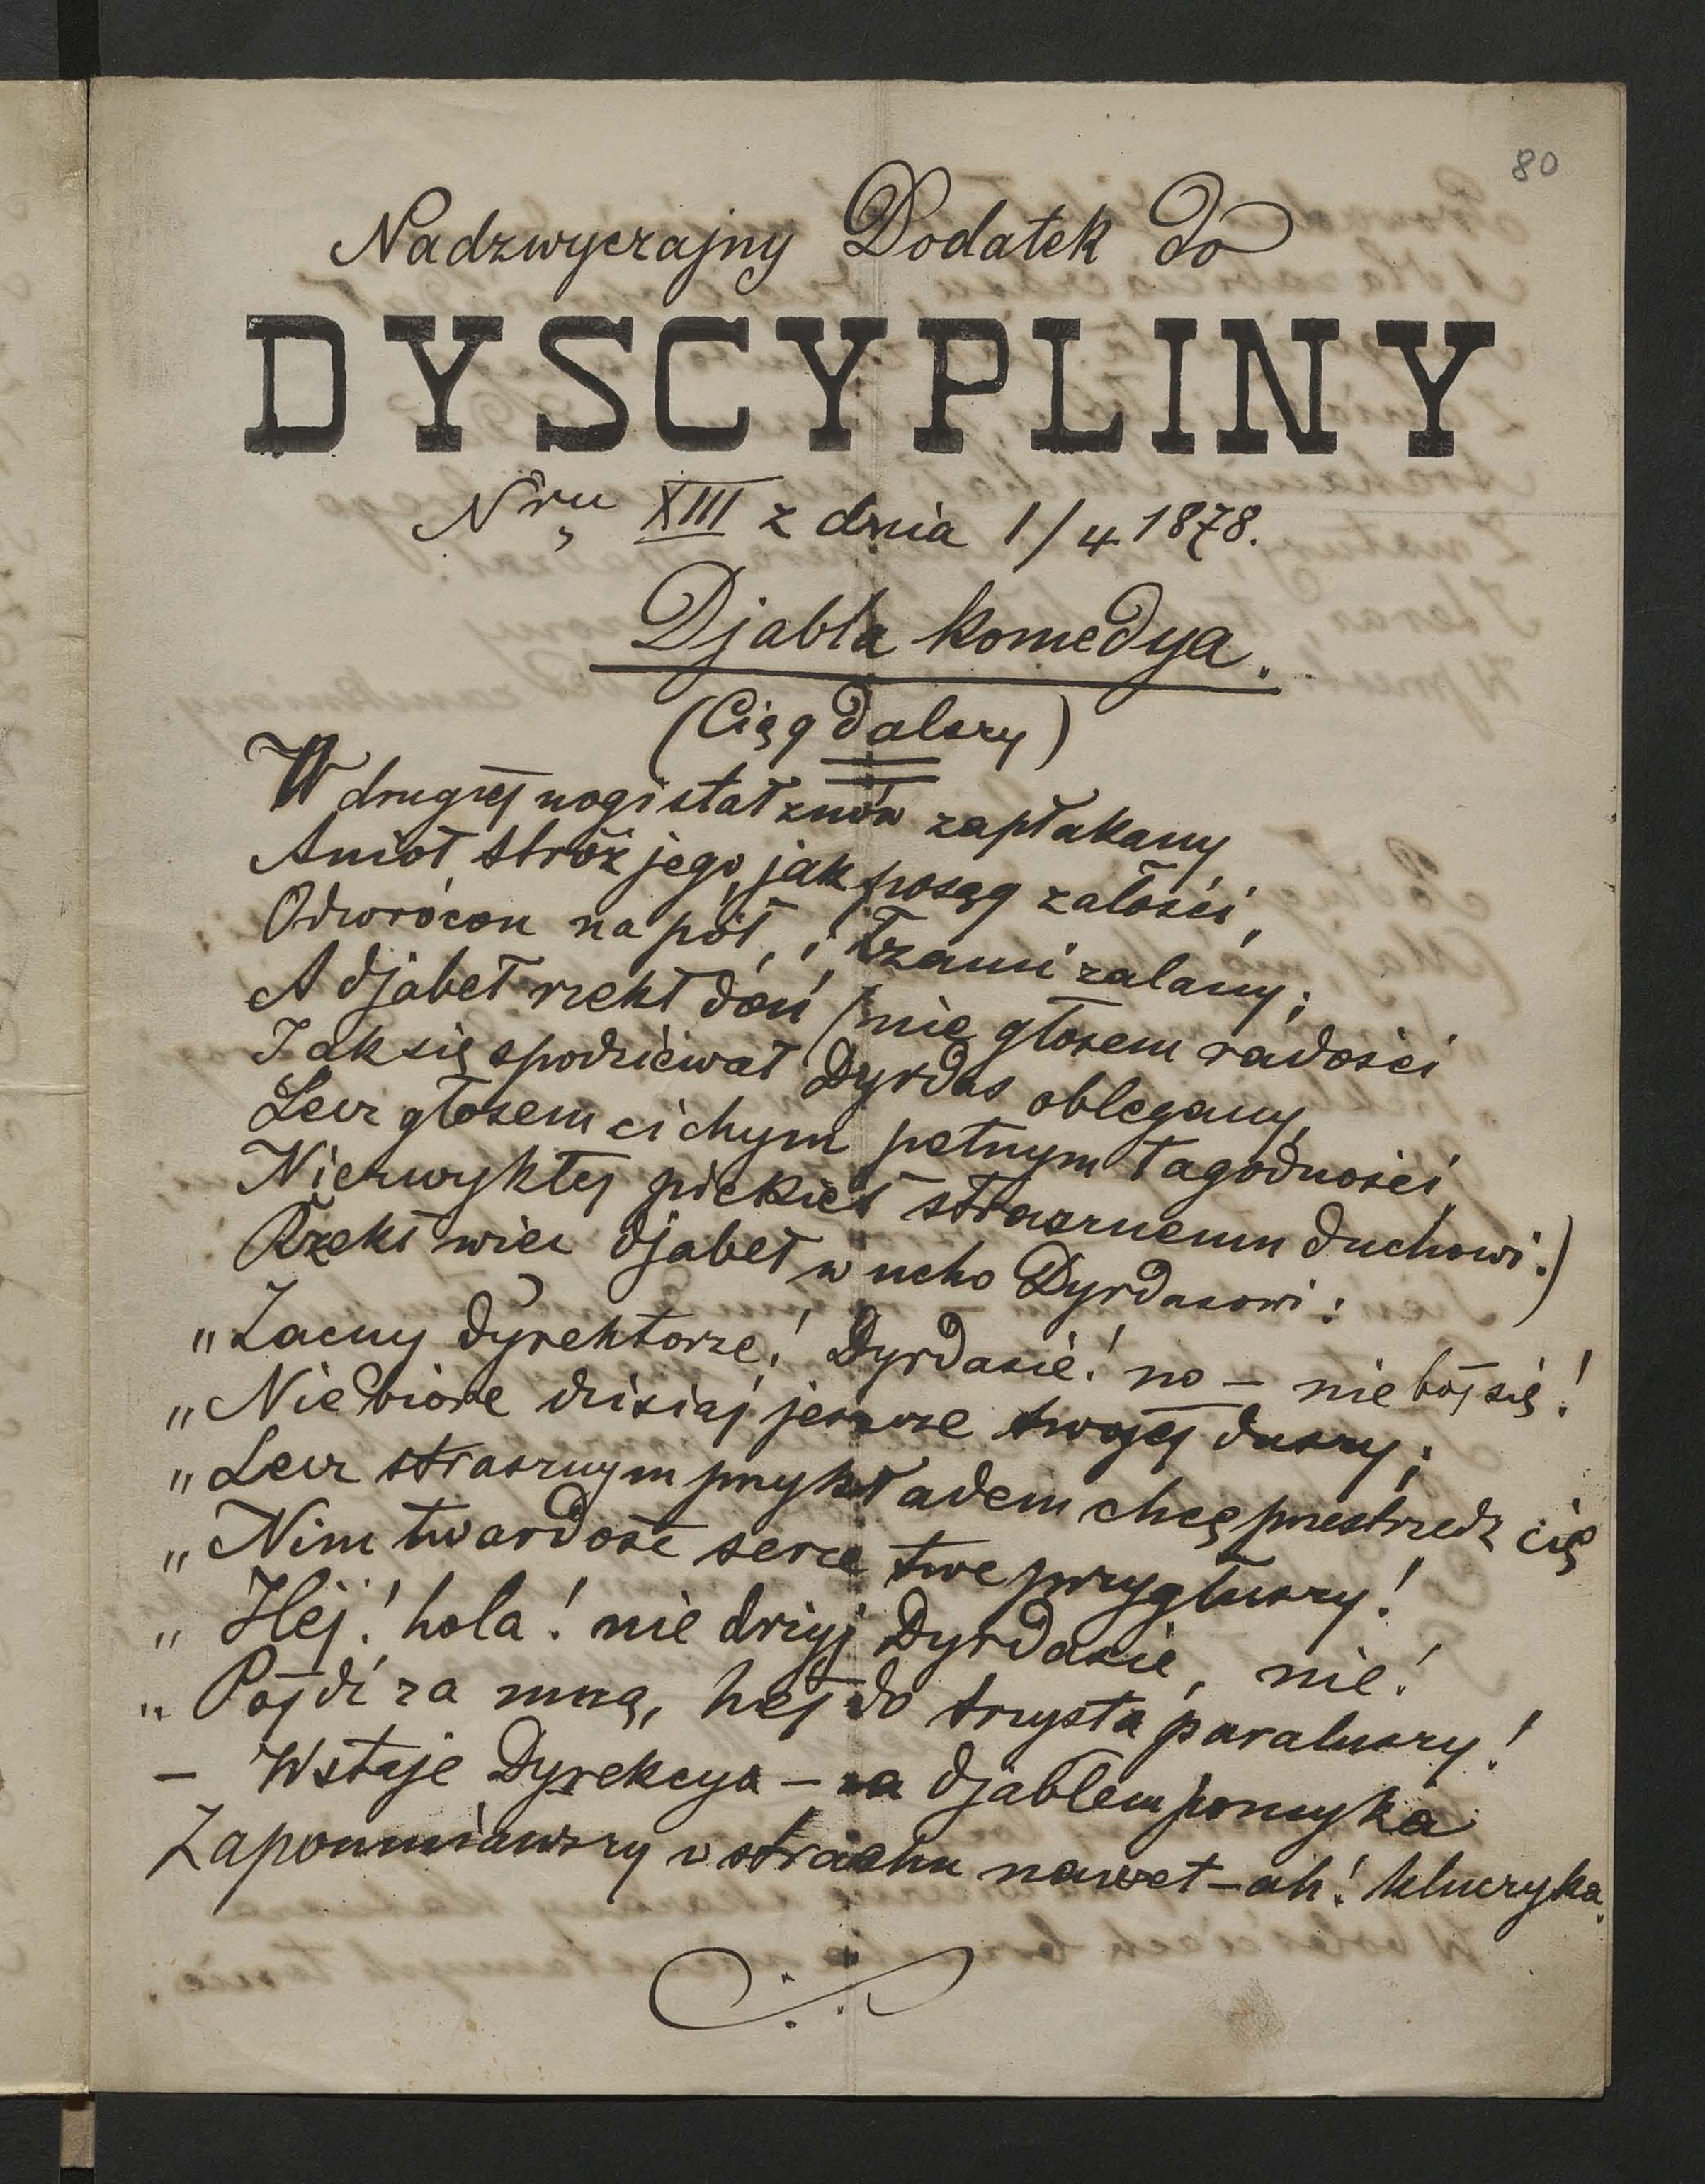 80
Nadzwyczajny Dodatek do
DYSCYPLINY
Nru XIII z dnia 1/4 1878.
Djabla komedya.
(Ciąg dalszy)
W drugiéj nogi stał znów zapłakany
Anioł stróż jego, jak posąg żałości,
Odwrócon na pół, i łzami zalany;
A djabeł rzekł doń (nie głosem radości
Jak się spodziewał Dyrdas oblegany,
Lecz głosem cichym pełnym łagodności
Niezwykłej piekieł strasznemu duchowi.)
Rzekł więc djabeł w ucho Dyrdasowi:
„Zacny dyrektorze! Dyrdasie! no – nie bój się!
„Nie biorę dzisiaj jeszcze twojéj duszy;
„Lecz strasznym przykładem chcę przestrzedz cię
„Nim twardość serce twe przygłuszy!
„Hej! hola! nie drżyj Dyrdasie, nie!
„Pójdź za mną, hej do trzysta paraluszy!
– Wstaje Dyrekcya – za djablem pomyka
Zapomniawszy w strachu nawet – ah! kluczyka.